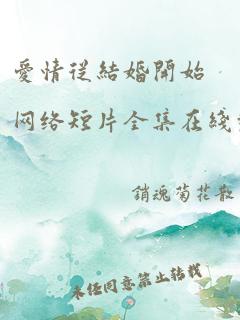 愛情從結婚開始
网络短片全集在綫
銷魂菊花散
未任同意禁止转载